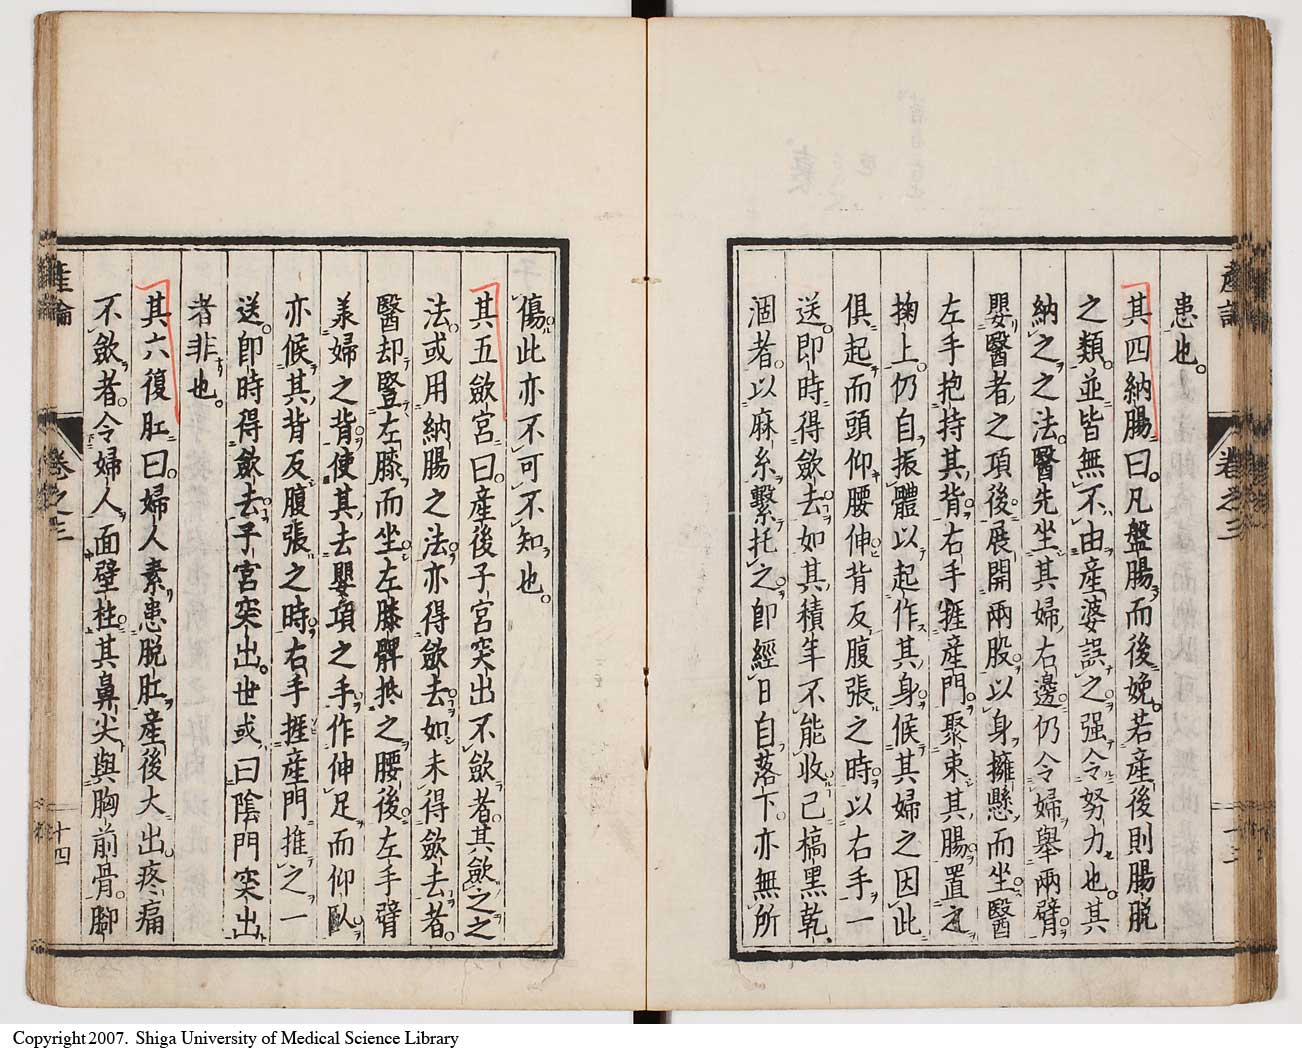 患也。
其四納腸曰。凡盤腸而後娩。若産後則腸脱
之類。並皆無不由産婆誤之强令努力也。其
納之之法。醫先坐其婦右邊。仍令婦舉兩臂。
嬰醫者之項後。展開兩股。以身擁懸而坐。醫
左手抱持其背。右手捱産門。聚束其腸。置之
掬上。仍自振體以起作其身。候其婦之因此
俱起而頭仰腰伸背反腹張之時。以右手一
送。即時得斂去。如其積年不能收已槁黑乾
涸者。以麻糸繫托之。即經日自落下。亦無所
産論
卷之三
十三
傷。此亦不可不知也。
其五斂宮曰。産後子宮突出不斂者。其斂之之
法。或用納腸之法。亦得斂去。如未得斂去者。
醫却豎左膝而坐。左膝髀抵之腰後。左手臂
羕婦之背。使其去嬰項之手。作伸足而仰臥。
亦候其背反腹張之時。右手捱産門推之一
送。即時得斂去。子宮突出。世或曰陰門突出
者非也。
其六復肛曰。婦人素患脱肛。産後大出疼痛
不斂者。令婦人面壁柱其鼻尖與胸前骨。脚
産論
卷之三
十四
Copyright 2007. Shiga University of Medical Science Library